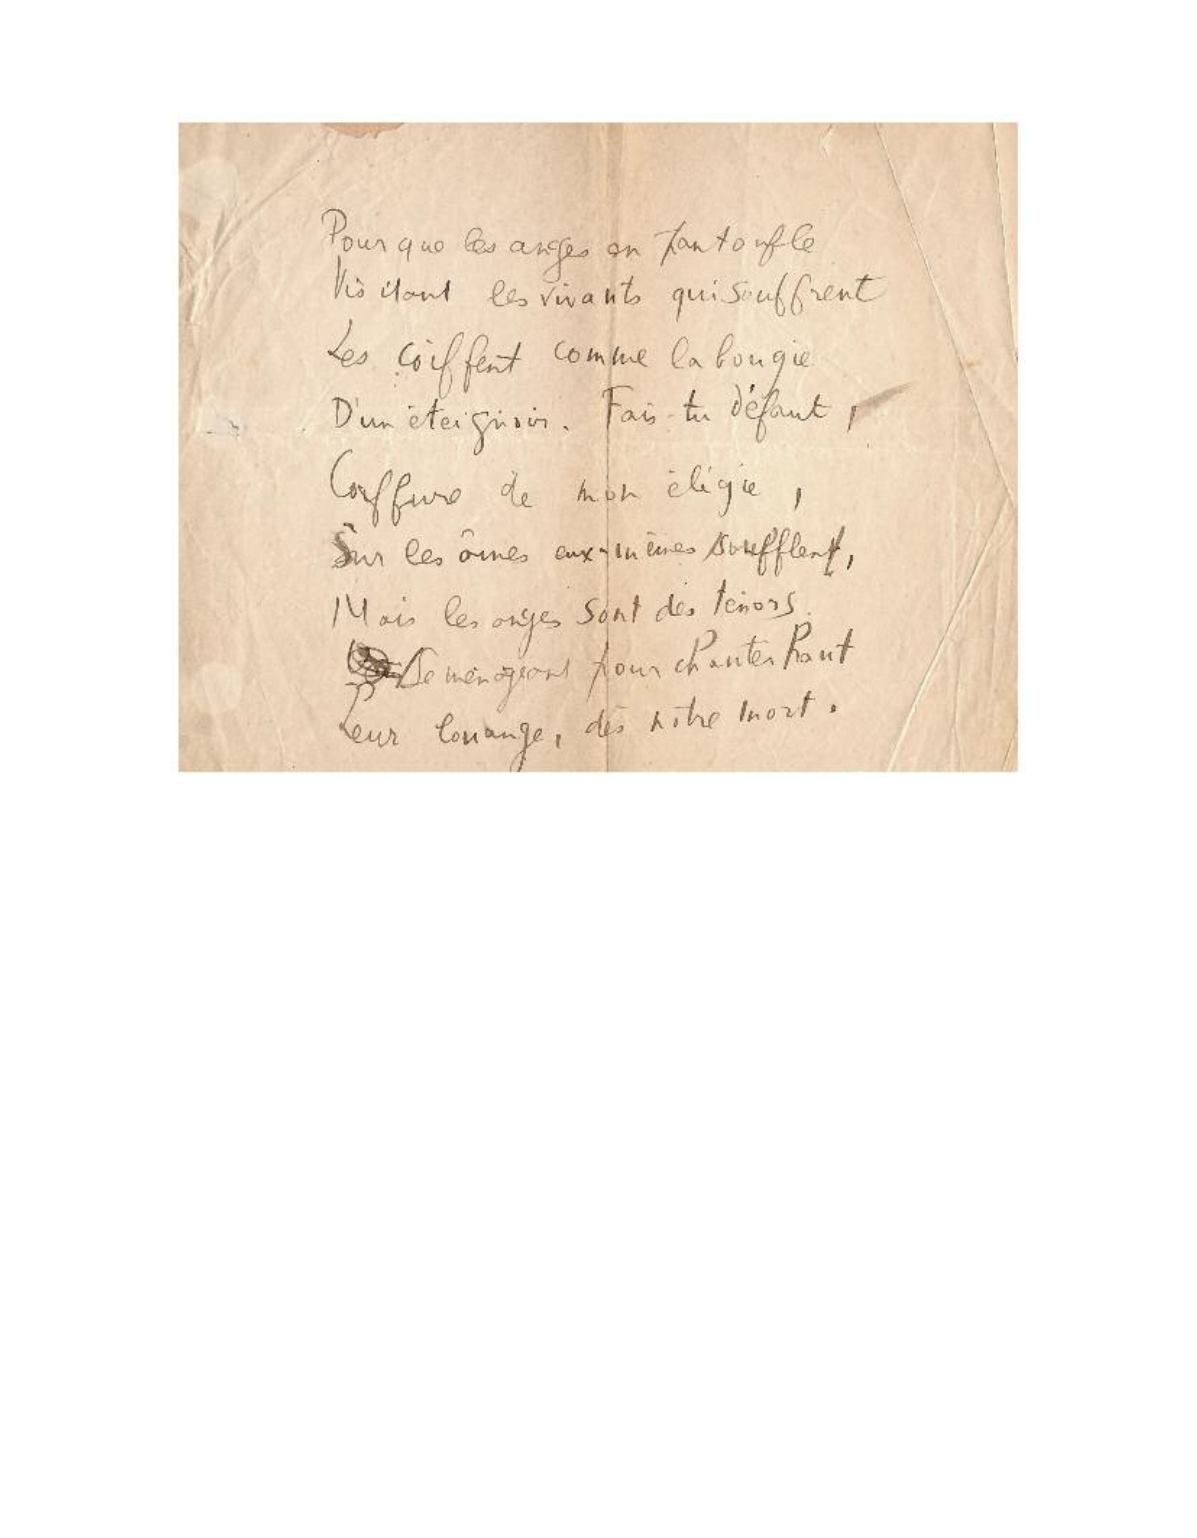 Pour que les anges en pantoufle
Visitant les vivants qui souffrent
Les coiffent comme la bougie
D'un éteignoir. Fais-tu défaut,
Coiffure de mon élégie,
Sur les âmes eux-mêmes soufflent,
Mais les anges sont des ténors
Se ménageant pour chanter haut
Leur louange, dès notre mort.